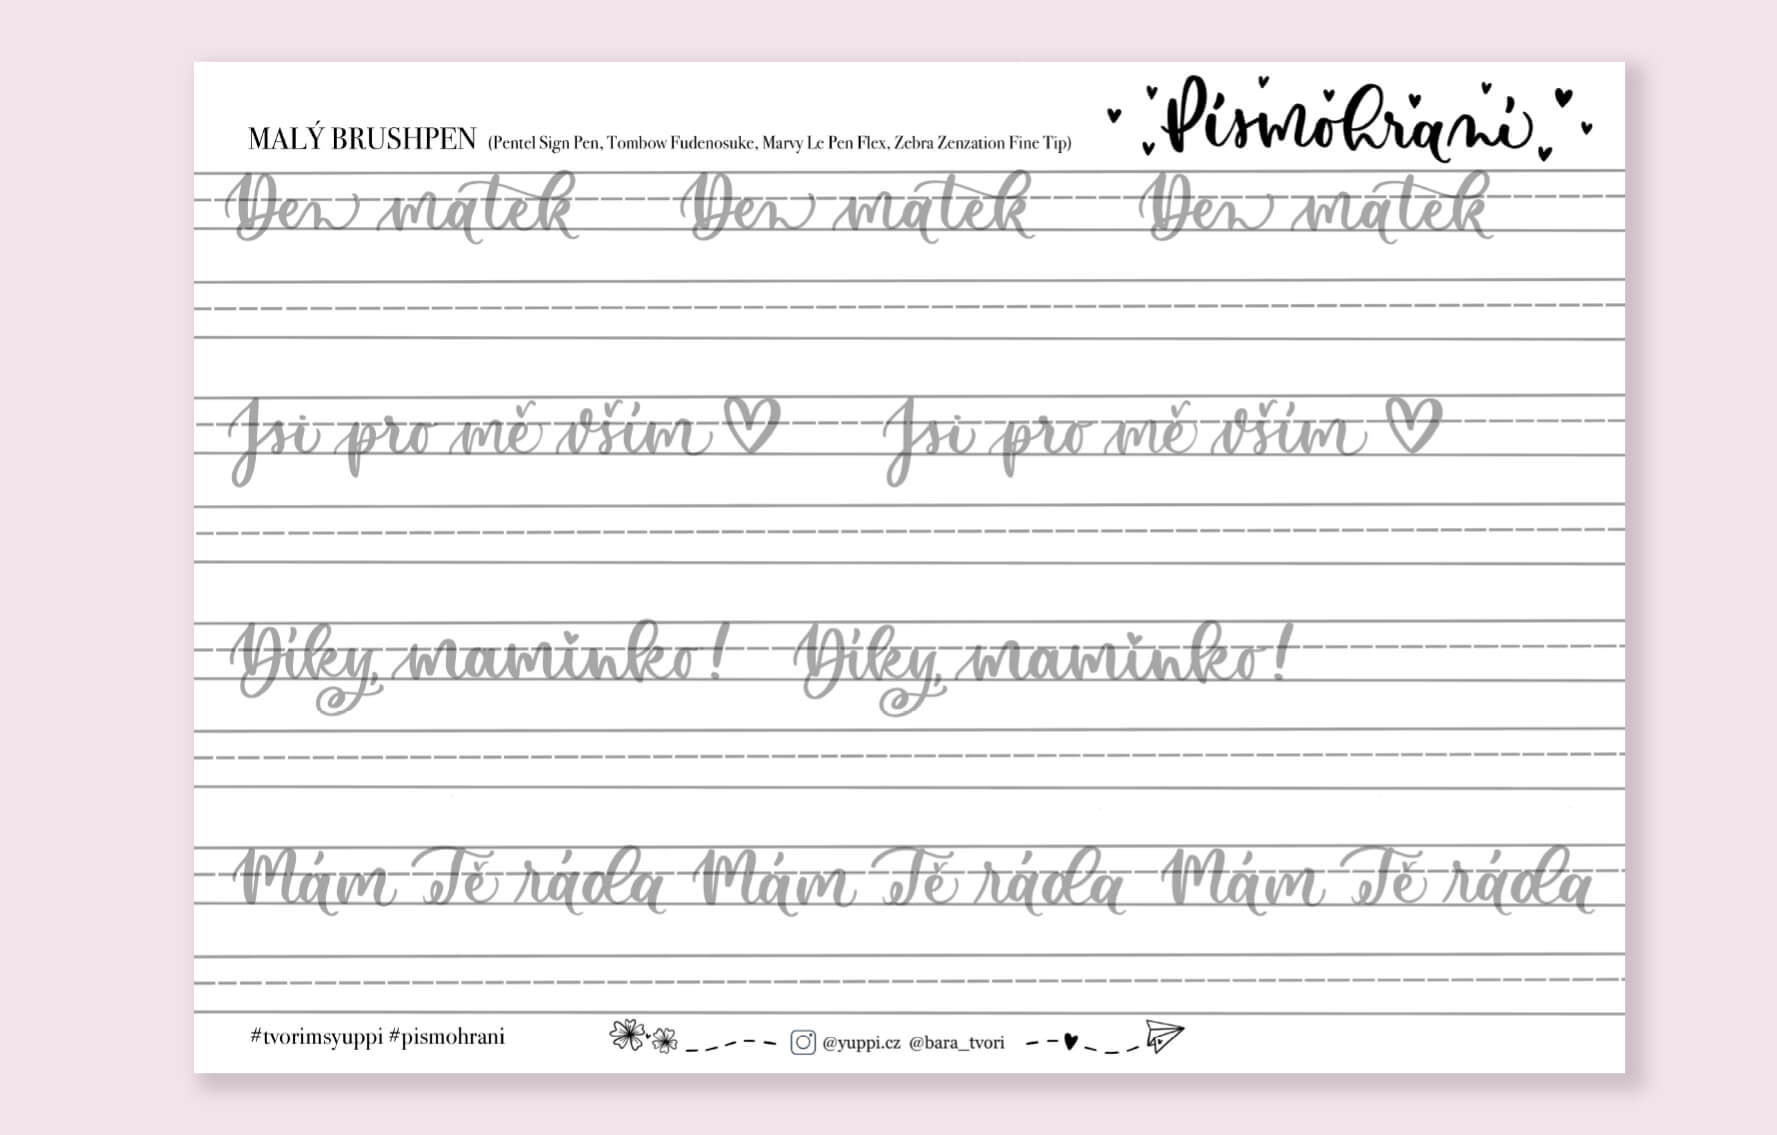 Písmohraní
MALÝ BRUSHPEN (Pentel Sign Pen, Tombow Fudenosuke, Marvy Le Pen Flex, Zebra Zenzation Fine Tip)
Den matek Den matek Den matek
Jsi pro mě vším Jsi pro mě vším
Díky, maminko! Díky, maminko!
Mám Tě ráda Mám Tě ráda Mám Tě ráda
#tvorimsyuppi #pismohrani @yuppi.cz @bara_tvori